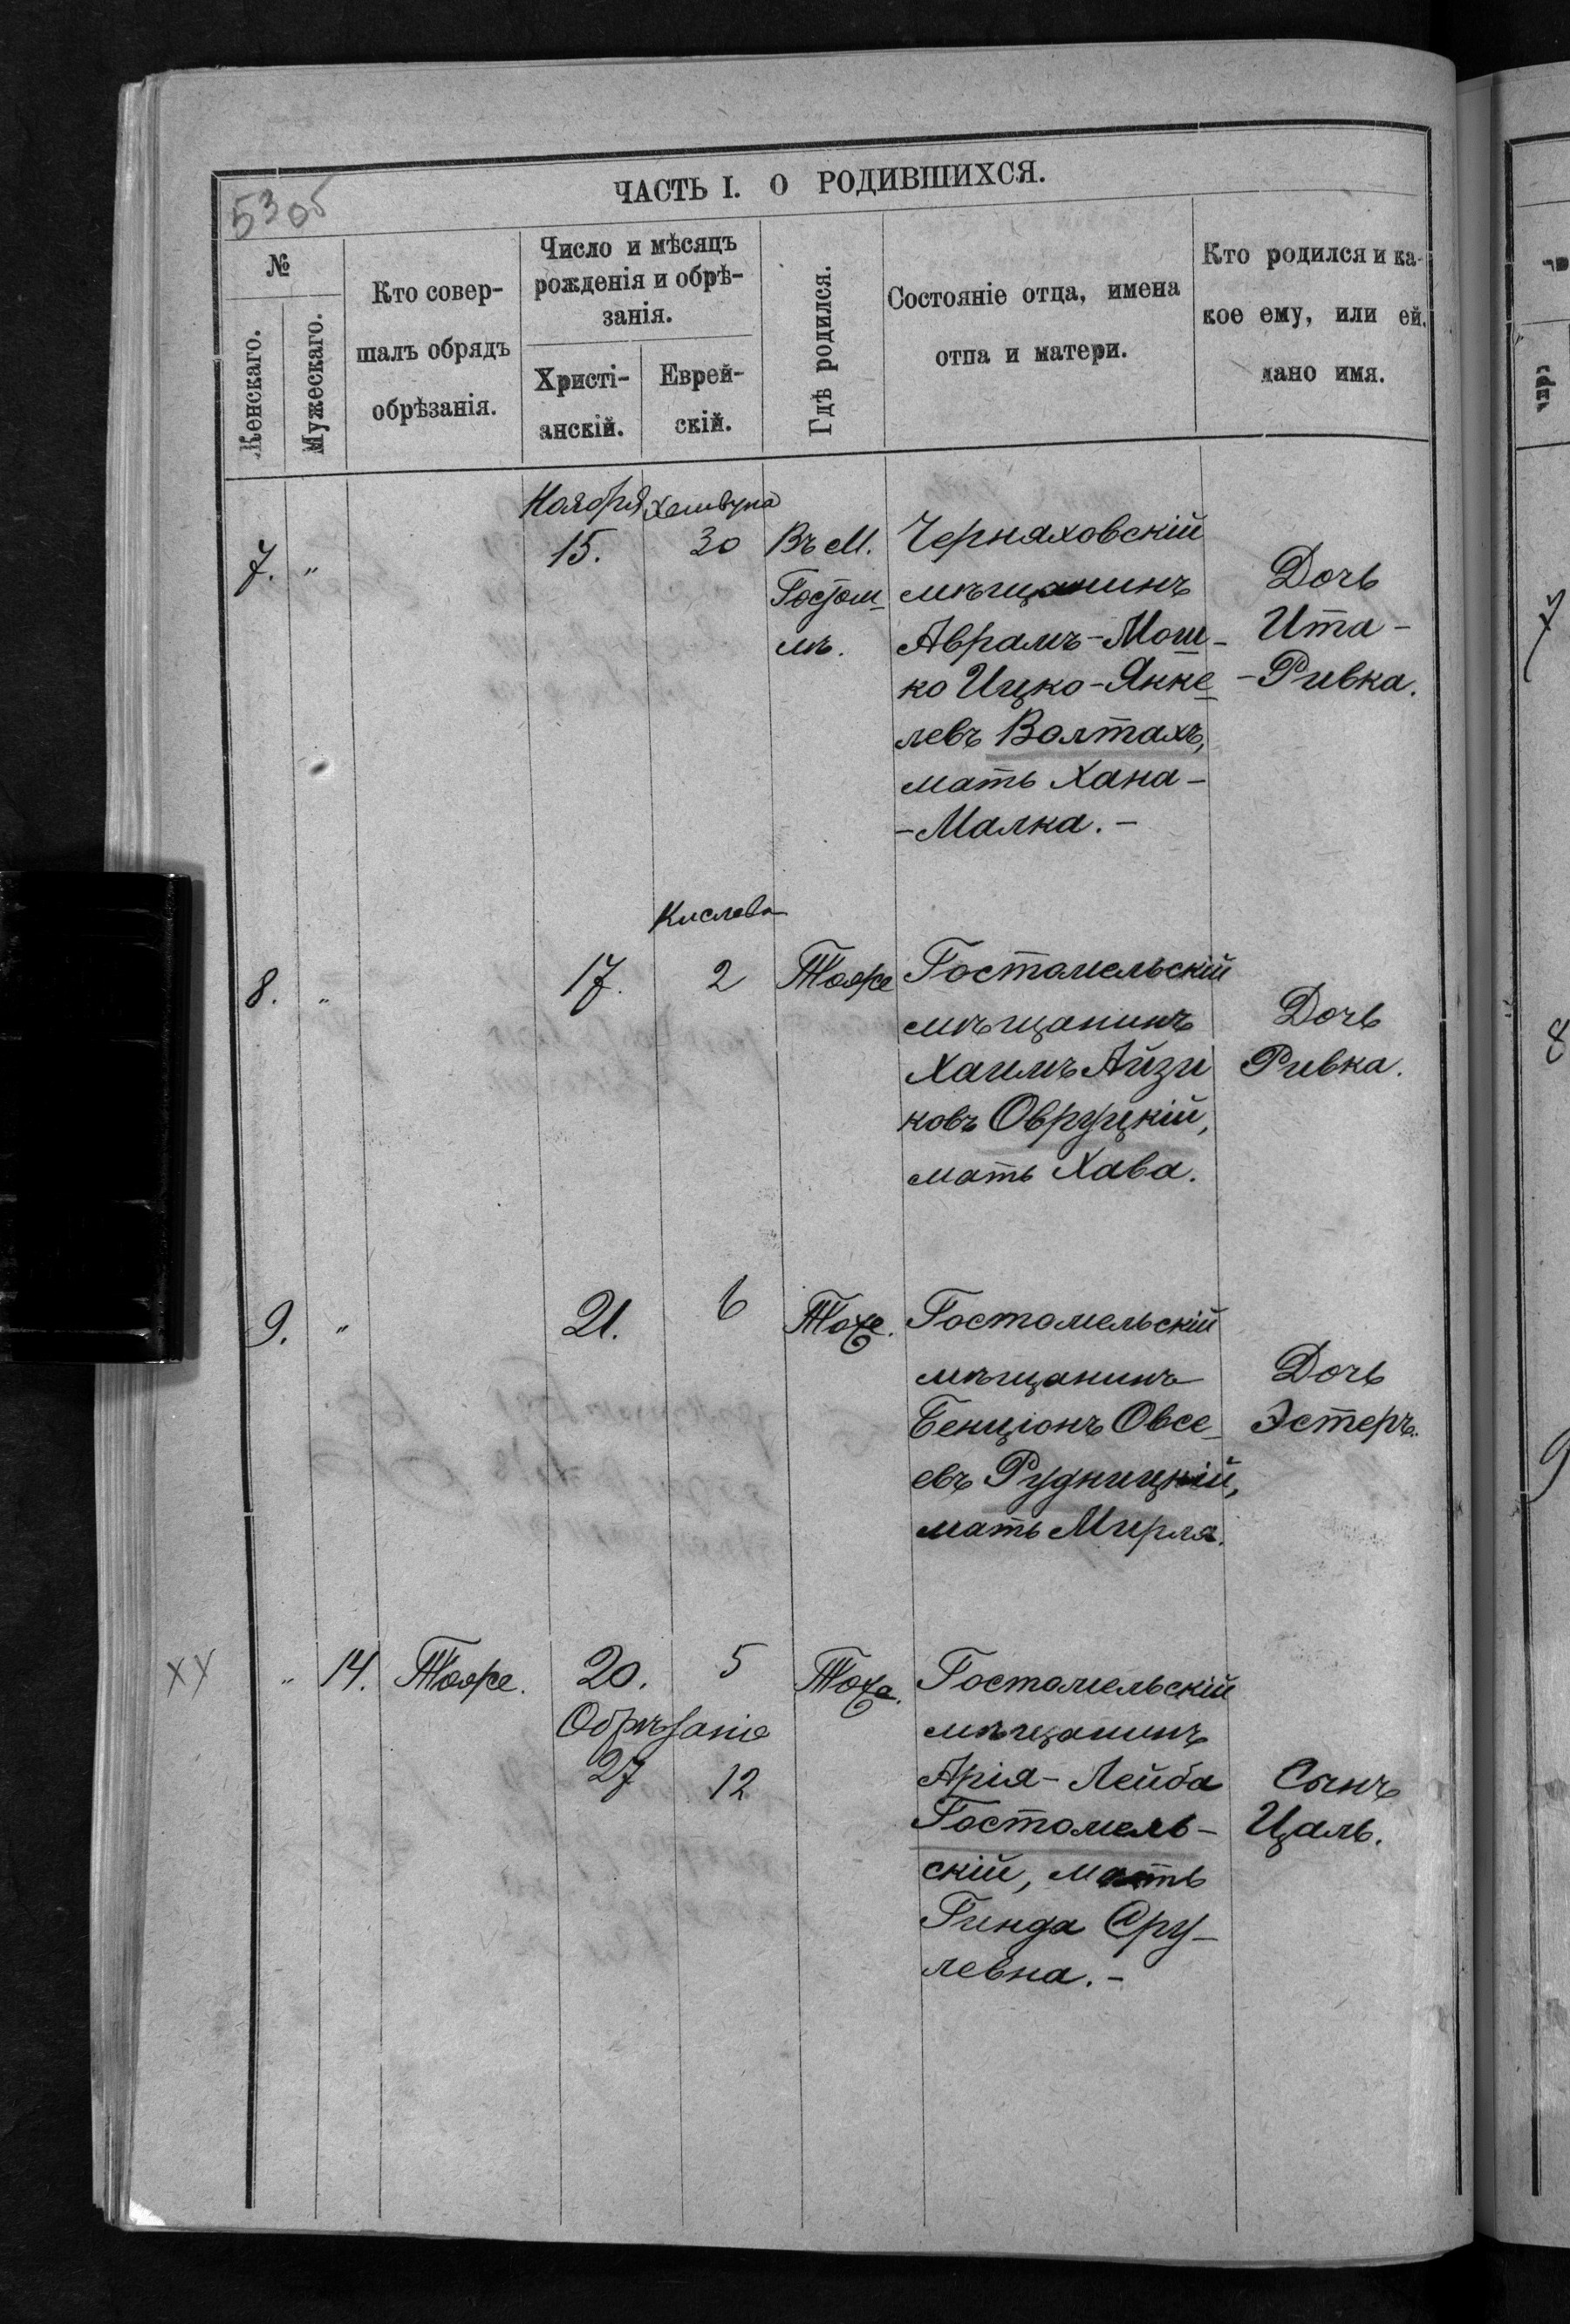 530б
ЧАСТЬ I. О РОДИВШИХСЯ.
№
Женскаго.
Мужескаго.
Кто совер-
шалъ обрядъ
обрѣзанія.
Число и мѣсяцъ
рожденія и обрѣ-
занія.
Христі-
анскій.
Еврей-
скій.
Гдѣ родился.
Состояніе отца, имена
отца и матери.
Кто родился и ка-
кое ему, или ей,
дано имя.
Ноября
15.
30
7. "
Въ М.
Гостом
лѣ.
Черняховскій
мѣщанинъ
Аврамъ-Мош-
ко Ицко-Янке
левъ Волтахъ,
мать Хана-
-Малка. -
Дочь
Ита-
-Ривка.
Кислева
8. " 17. 2 Тоже
Гостомельскій
мѣщанинъ
Хаимъ Айзи
ковъ Овруцкій,
мать Хава.
Дочь
Ривка.
9. " 21. 6 Тоже.
Гостомельскій
мѣщанинъ
Бенціонъ Овсе
евъ Рудницкій,
мать Мирля.
Дочь
Эстеръ.
ХУ " 14. Тоже. 20. 5 Тоже.
Обрѣзаніе
27 12
Гостомельскій
мѣщанинъ
Арія-Лейба
Гостомель-
скій, мать
Гинда Сру-
левна. -
Сынъ
Цаль.
7
8
9